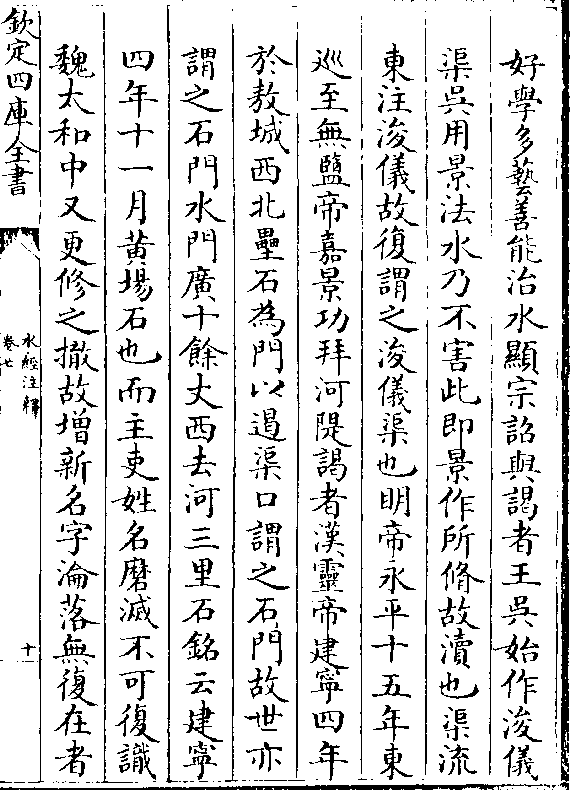 好學多藝善能治水顯宗詔與謁者王吳始作浚儀
渠吳用景法水乃不害此即景作所脩故瀆也渠流
東注浚儀故復謂之浚儀渠也明帝永平十五年東
巡至無鹽帝嘉景功拜河隄謁者漢靈帝建寧四年
於敖城西北壘石為門以遏渠口謂之石門故世亦
謂之石門水門廣十餘丈西去河三里石銘云建寧
四年十一月黃場石也而主吏姓名磨滅不可復識
魏太和中又更修之撤故增新名字淪落無復在者
欽定四庫全書
水經注釋
卷七
十